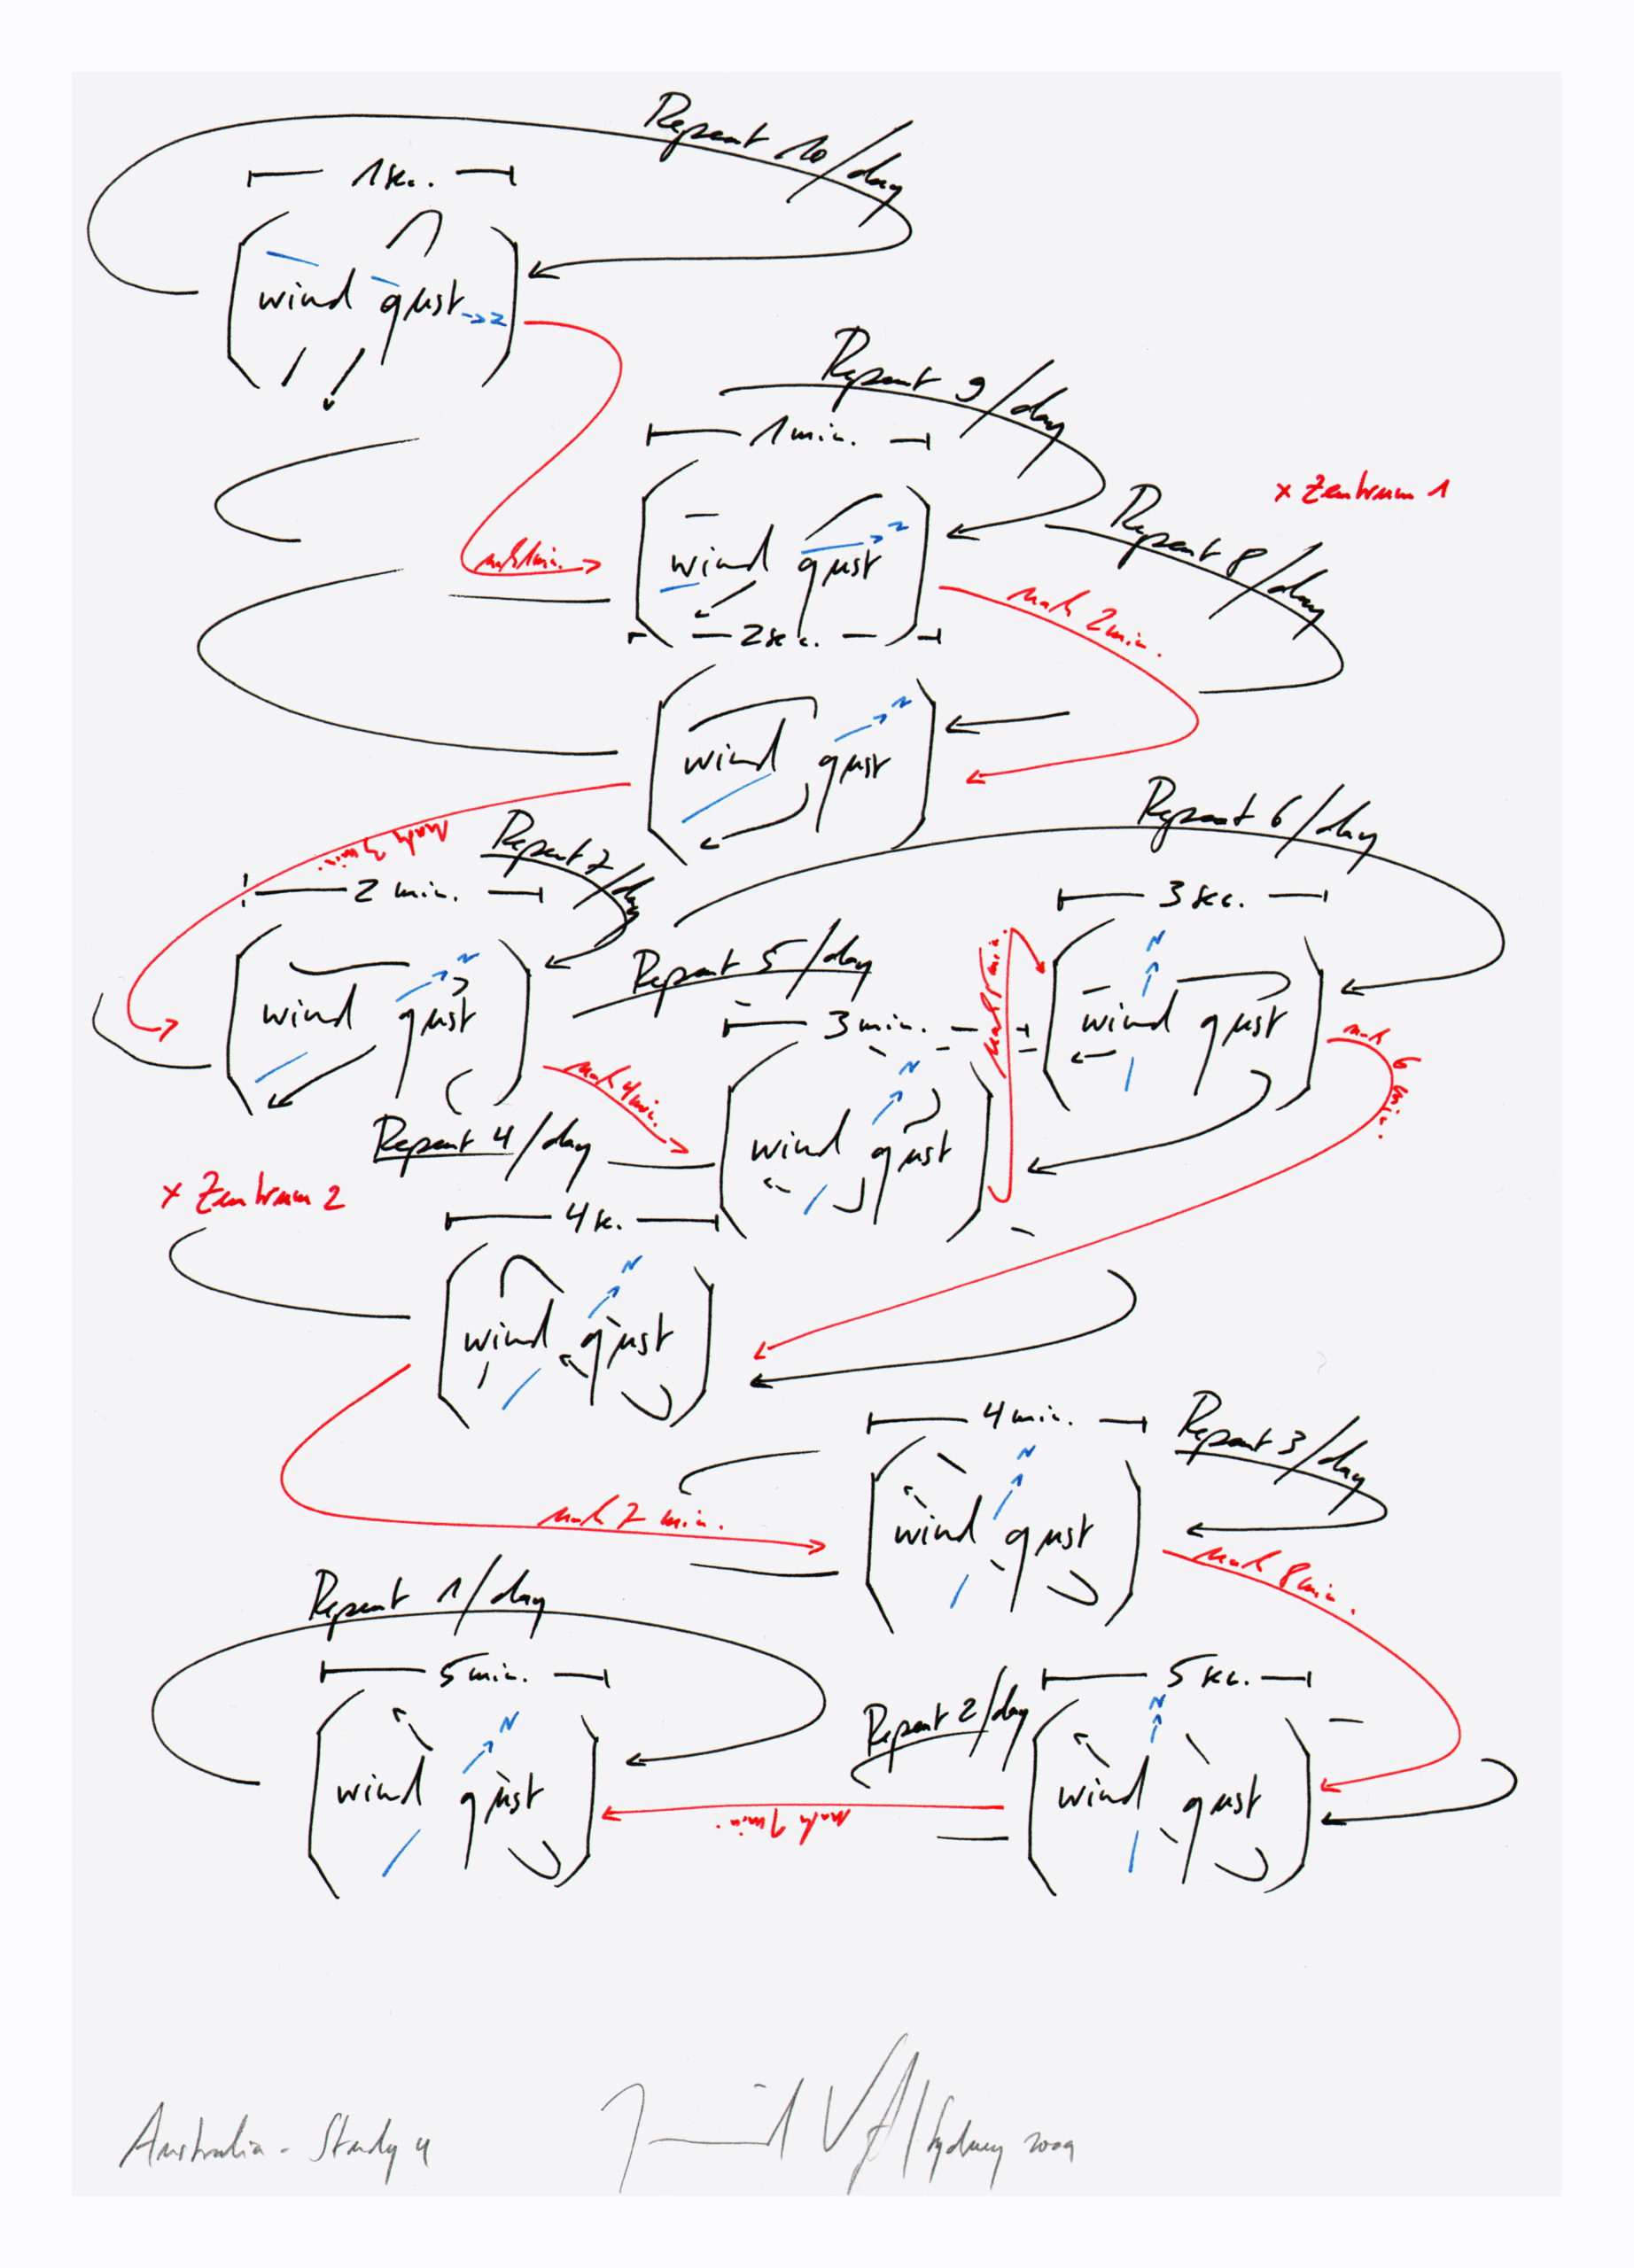 Repeat 10/day
1 sec.
wind gust
N
Repeat 9/day
1 min.
x Zentrum 1
wind gust
N
nach 1 min.
Repeat 8/day
nach 2 min.
2 sec.
wind gust
N
nach 3 min.
Repeat 7/day
Repeat 6/day
2 min.
3 sec.
wind gust
N
Repeat 5/day
3 min.
nach 5 min.
wind gust
N
nach 6 min.
nach 4 min.
wind gust
N
Repeat 4/day
x Zentrum 2
4 sec.
wind gust
N
4 min.
Repeat 3/day
wind gust
N
nach 7 min.
nach 8 min.
Repeat 1/day
5 min.
wind gust
N
Repeat 2/day
5 sec.
wind gust
N
nach 9 min.
Australia - Study 4
Sydney 2009